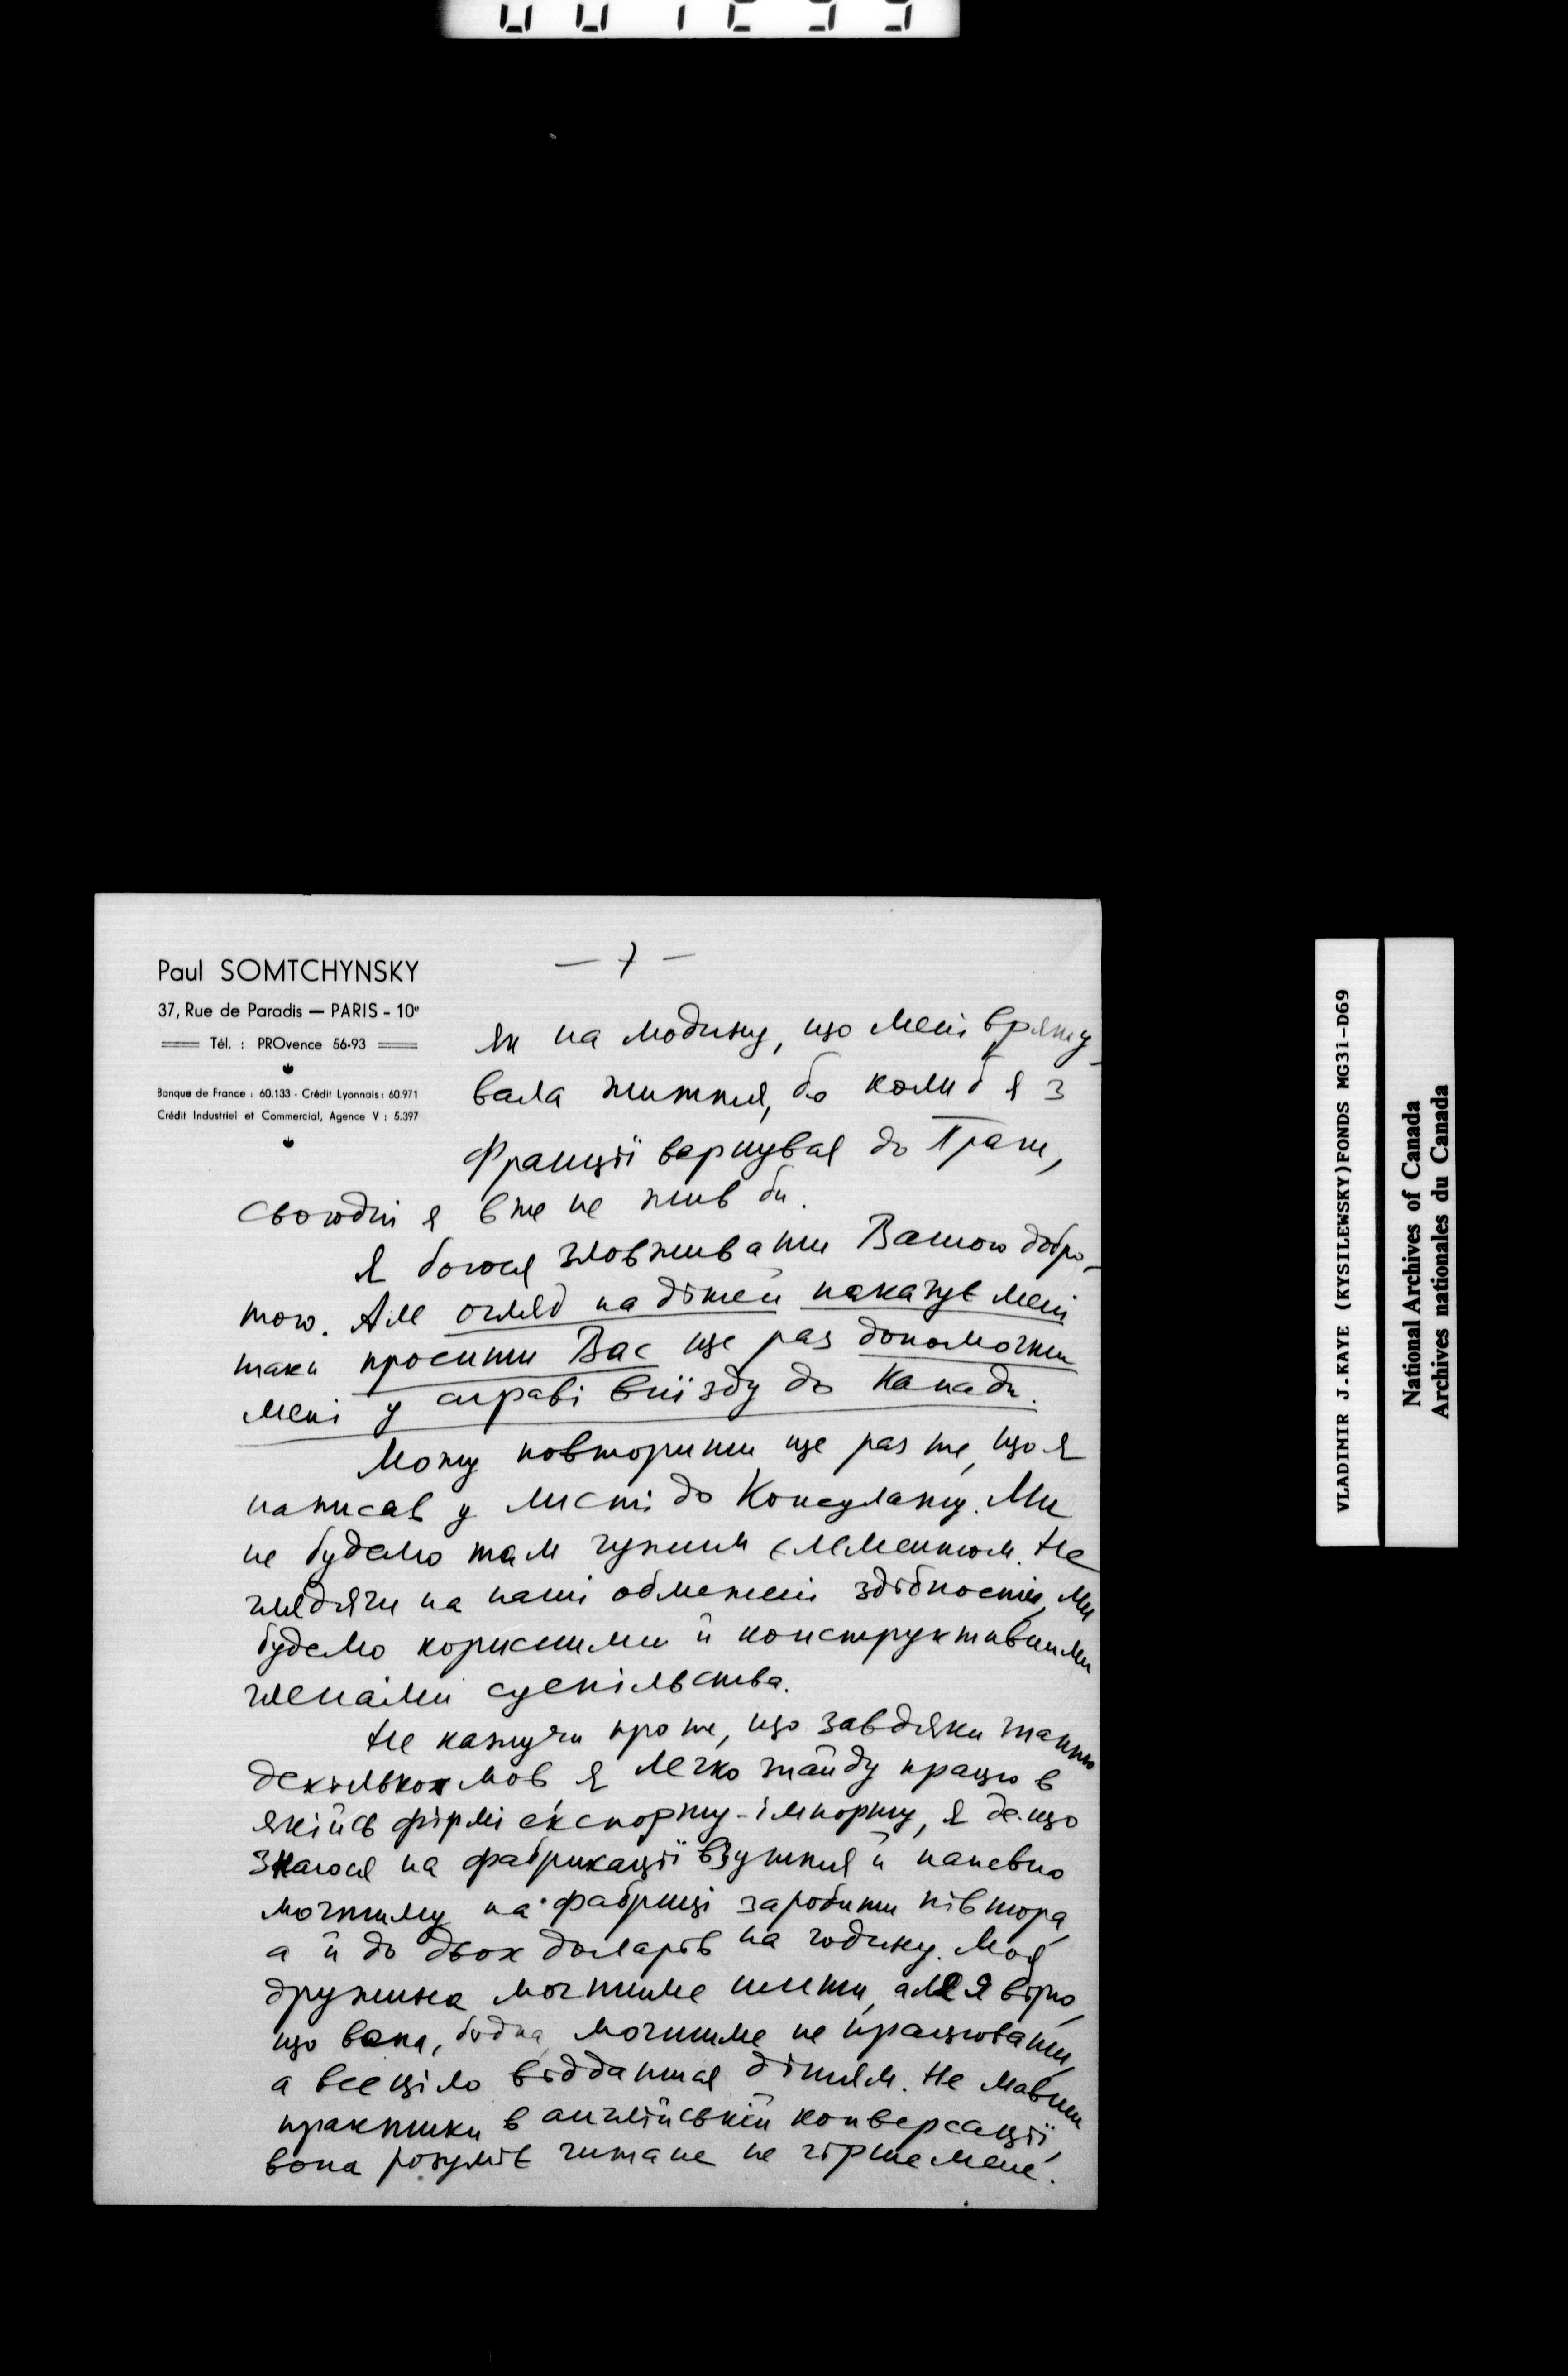 Paul SOMTCHYNSKY
37, Rue de Paradis — PARIS - 10e
Tél. : PROvence 56-93
Banque de France : 60.133 - Crédit Lyonnais : 60.971
Crédit Industriel et Commercial, Agence V : 5.397
— 7 —
як на людину, що мені вряту-
вала життя, бо коли б я з
Франції вернувся до Праги,
сьогодні я вже не жив би.
Я боюся зловживати Вашою добро-
тою. Але огляд на дітей наказує мені
таки просити Вас ще раз допомогти
мені у справі виїзду до Канади.
Можу повторити ще раз те, що я
написав у листі до Консуляту. Ми
не будемо там чужим елементом. Не
глядячи на наші обмежені здібности, ми
будемо корисними й конструктивними
членами суспільства.
Не кажучи про те, що завдяки знанню
декількох мов я легко знайду працю в
якійсь фірмі експорту-імпорту, я дещо
знаюся на фабрикації взуття й напевно
могтиму на фабриці заробити півтора,
а й до двох долярів на годину. Моя
дружина могтиме шити, але я вірю,
що вона, бідна, могтиме не працювати,
а всеціло віддатися дітям. Не мавши
практики в англійській конверсації,
вона розуміє читане не гірше мене.
VLADIMIR J.KAYE (KYSILEWSKY)FONDS MG31-D69
National Archives of Canada
Archives nationales du Canada